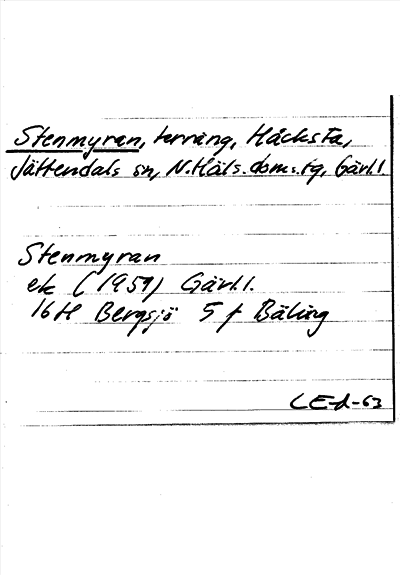 Stenmyran, terräng, Håcksta,
Jättendals sn, N.Häls.doms.tg, Gävl.l
Stenmyran
ek (1959) Gävl.l.
16H Bergsjö 5 f Bäling
LE-d-63